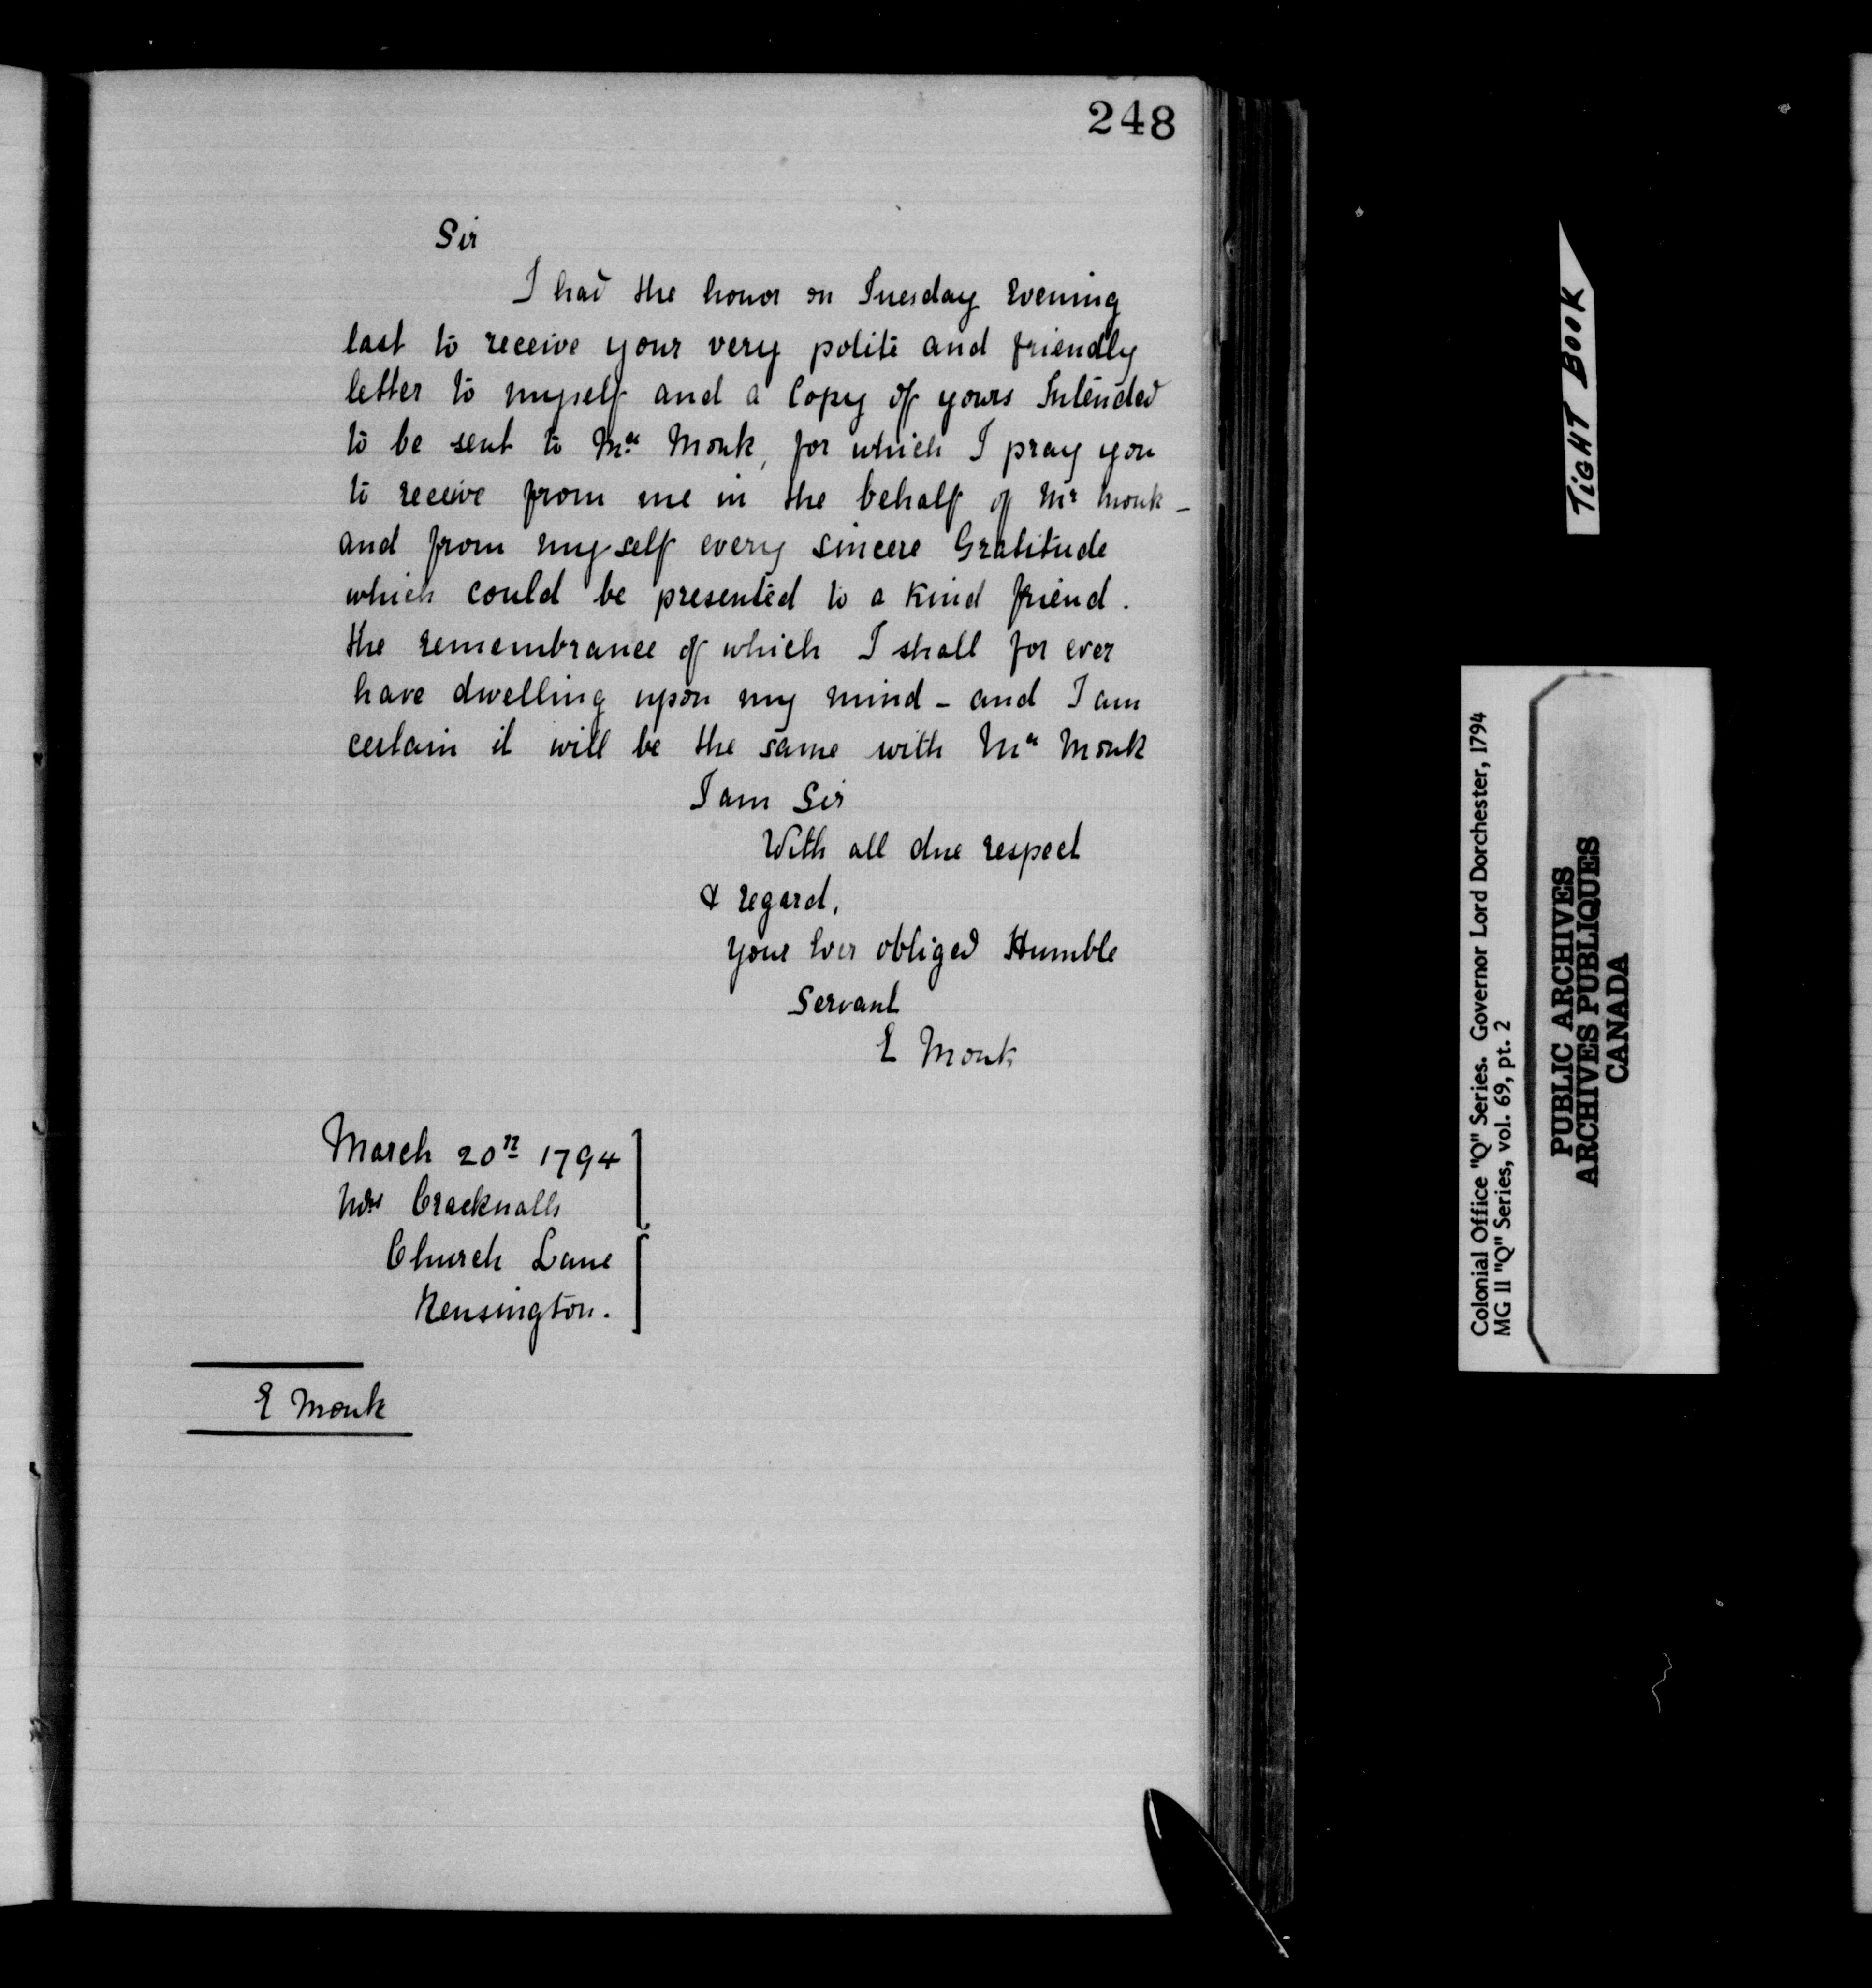 248
Sir
I had the honor on Tuesday Evening
last to receive your very polite and friendly
letter to myself and a Copy of yours Intended
to be sent to Mr Monk, for which I pray you
to receive from me in the behalf of Mr Monk -
and from myself every sincere Gratitude
which could be presented to a kind friend.
the remembrance of which I shall for ever
have dwelling upon my mind - and I am
certain it will be the same with Mr Monk
I am Sir
With all due respect
& regard,
your Ever obliged Humble
Servant
E Monk
March 20th 1794
Mrs Cracknalls
Church Lane
Kensington.
E Monk
TIGHT BOOK
Colonial Office "Q" Series. Governor Lord Dorchester, 1794
MG 11 "Q" Series, vol. 69, pt. 2
PUBLIC ARCHIVES
ARCHIVES PUBLIQUES
CANADA